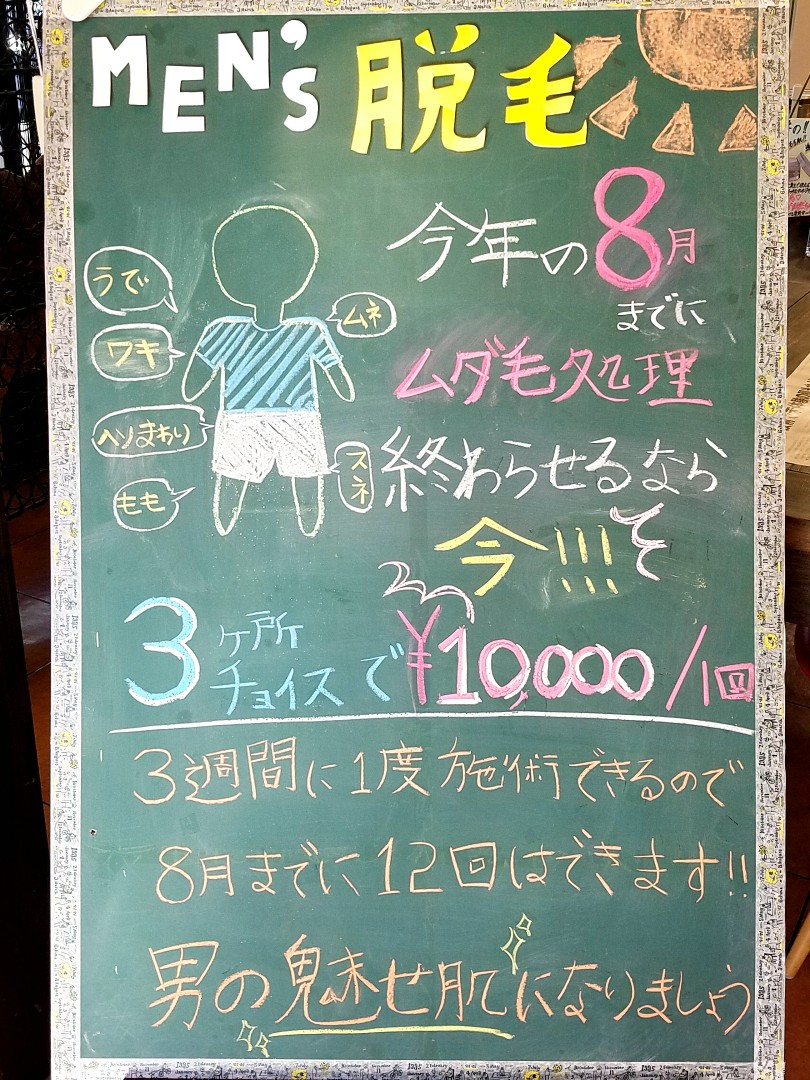 MEN'S 脱毛
今年の8月
までに
ムダ毛処理
終わらせるなら
今!!!
そ
うで
ワキ
ヘソまわり
もも
ムネ
スネ
3ヶ所
チョイスで¥10,000/1回
3週間に1度施術できるので
8月までに12回はできます!!
男の魅せ肌になりましょう